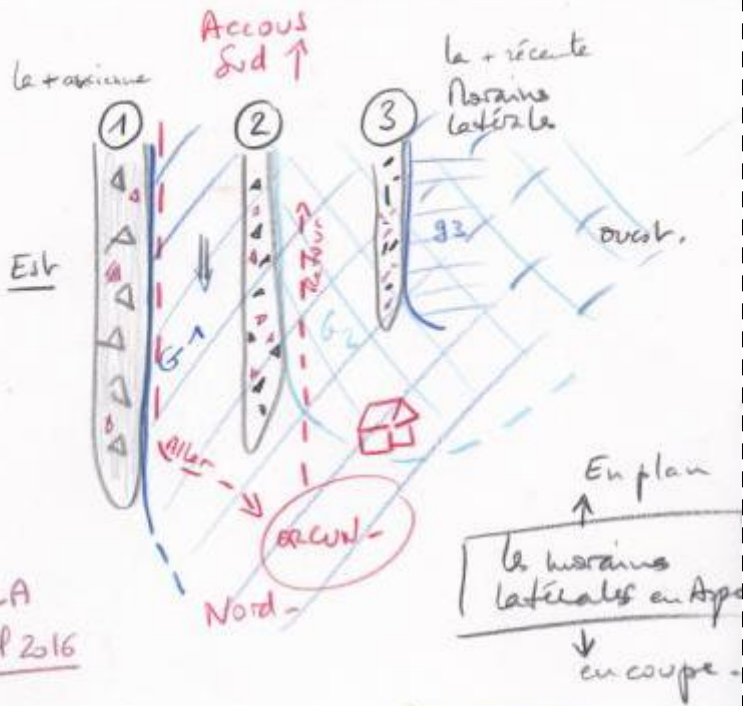 Accous
Sud
la + ancienne
la + récente
Moraines
latérales
1
2
3
Est
G1
G2
g3
Retour
ouest.
Aller
ORCUN-
Nord-
En plan
les moraines
latérales en Aspe
en coupe.
LA
P 2016